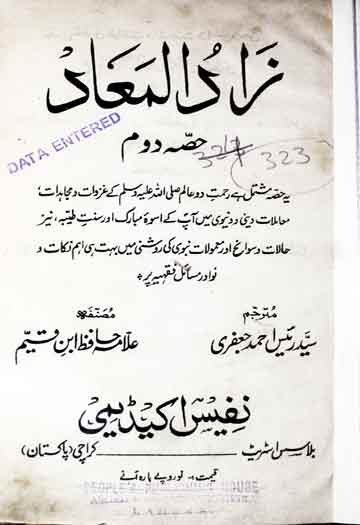 زاد المعاد
DATA ENTERED
حصّہ دوم
323
یہ حصّہ مشتمل ہے رحمتِ دو عالم صلی اللہ علیہ وسلم کے غزوات و مجاہدات؛
معاملات دینی و دنیوی میں آپ کے اسوۂ مبارک اور سنت طیّبہ، نیز
حالات و سوانح اور معمولات نبوی کی روشنی میں بہت ہی اہم نکات و
نوادر مسائل فقہیہ پر
مترجم
سیّد رئیس احمد جعفری
مصنفہ
علامہ حافظ ابن قیّم
نفیس اکیڈیمی
بلاسس اسٹریٹ کراچی (پاکستان)
قیمت:۔ نو روپے بارہ آنے